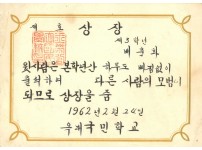 제 호 상장
제3학년
배종화
윗사람은 본학년간 하루도 빠짐없이
출석하여 다른 사람의 모범이
되므로 상장을 줌
1962년 2월 24일
국민학교